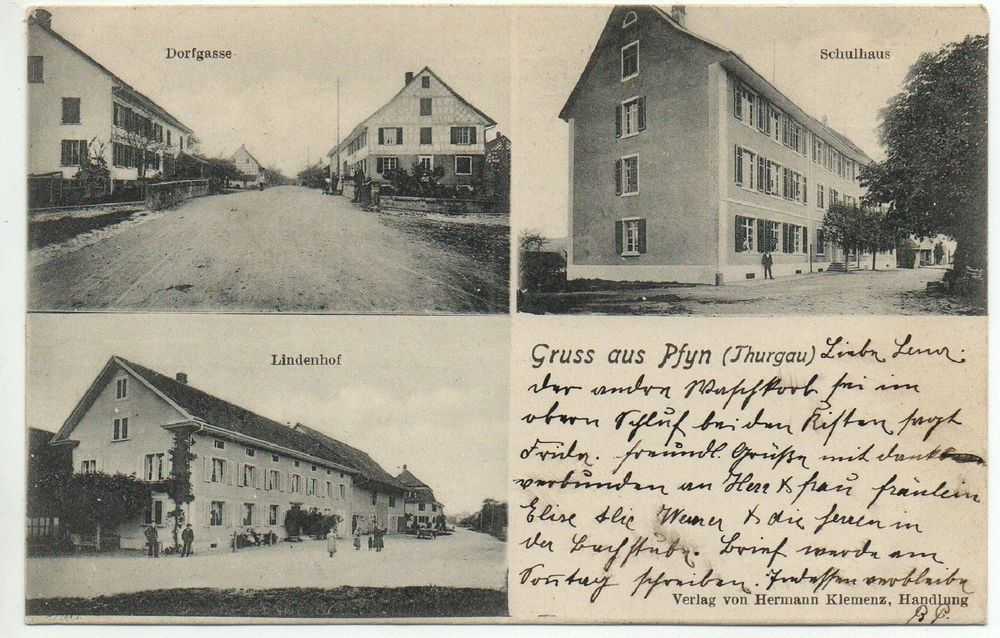 Dorfgasse
Schulhaus
Lindenhof
Gruss aus Pfyn (Thurgau) Liebe
der andre Waschkorb sei im
obern Schluf bei den Kisten sagt
Frida. freundl. Grüße mit dank
verbunden an Herr & frau fräulein
Elise Werner & die Herren in
der Bachstube. Brief werde am
Sonntag schreiben. Indessen verbleibe
Verlag von Hermann Klemenz, Handlung